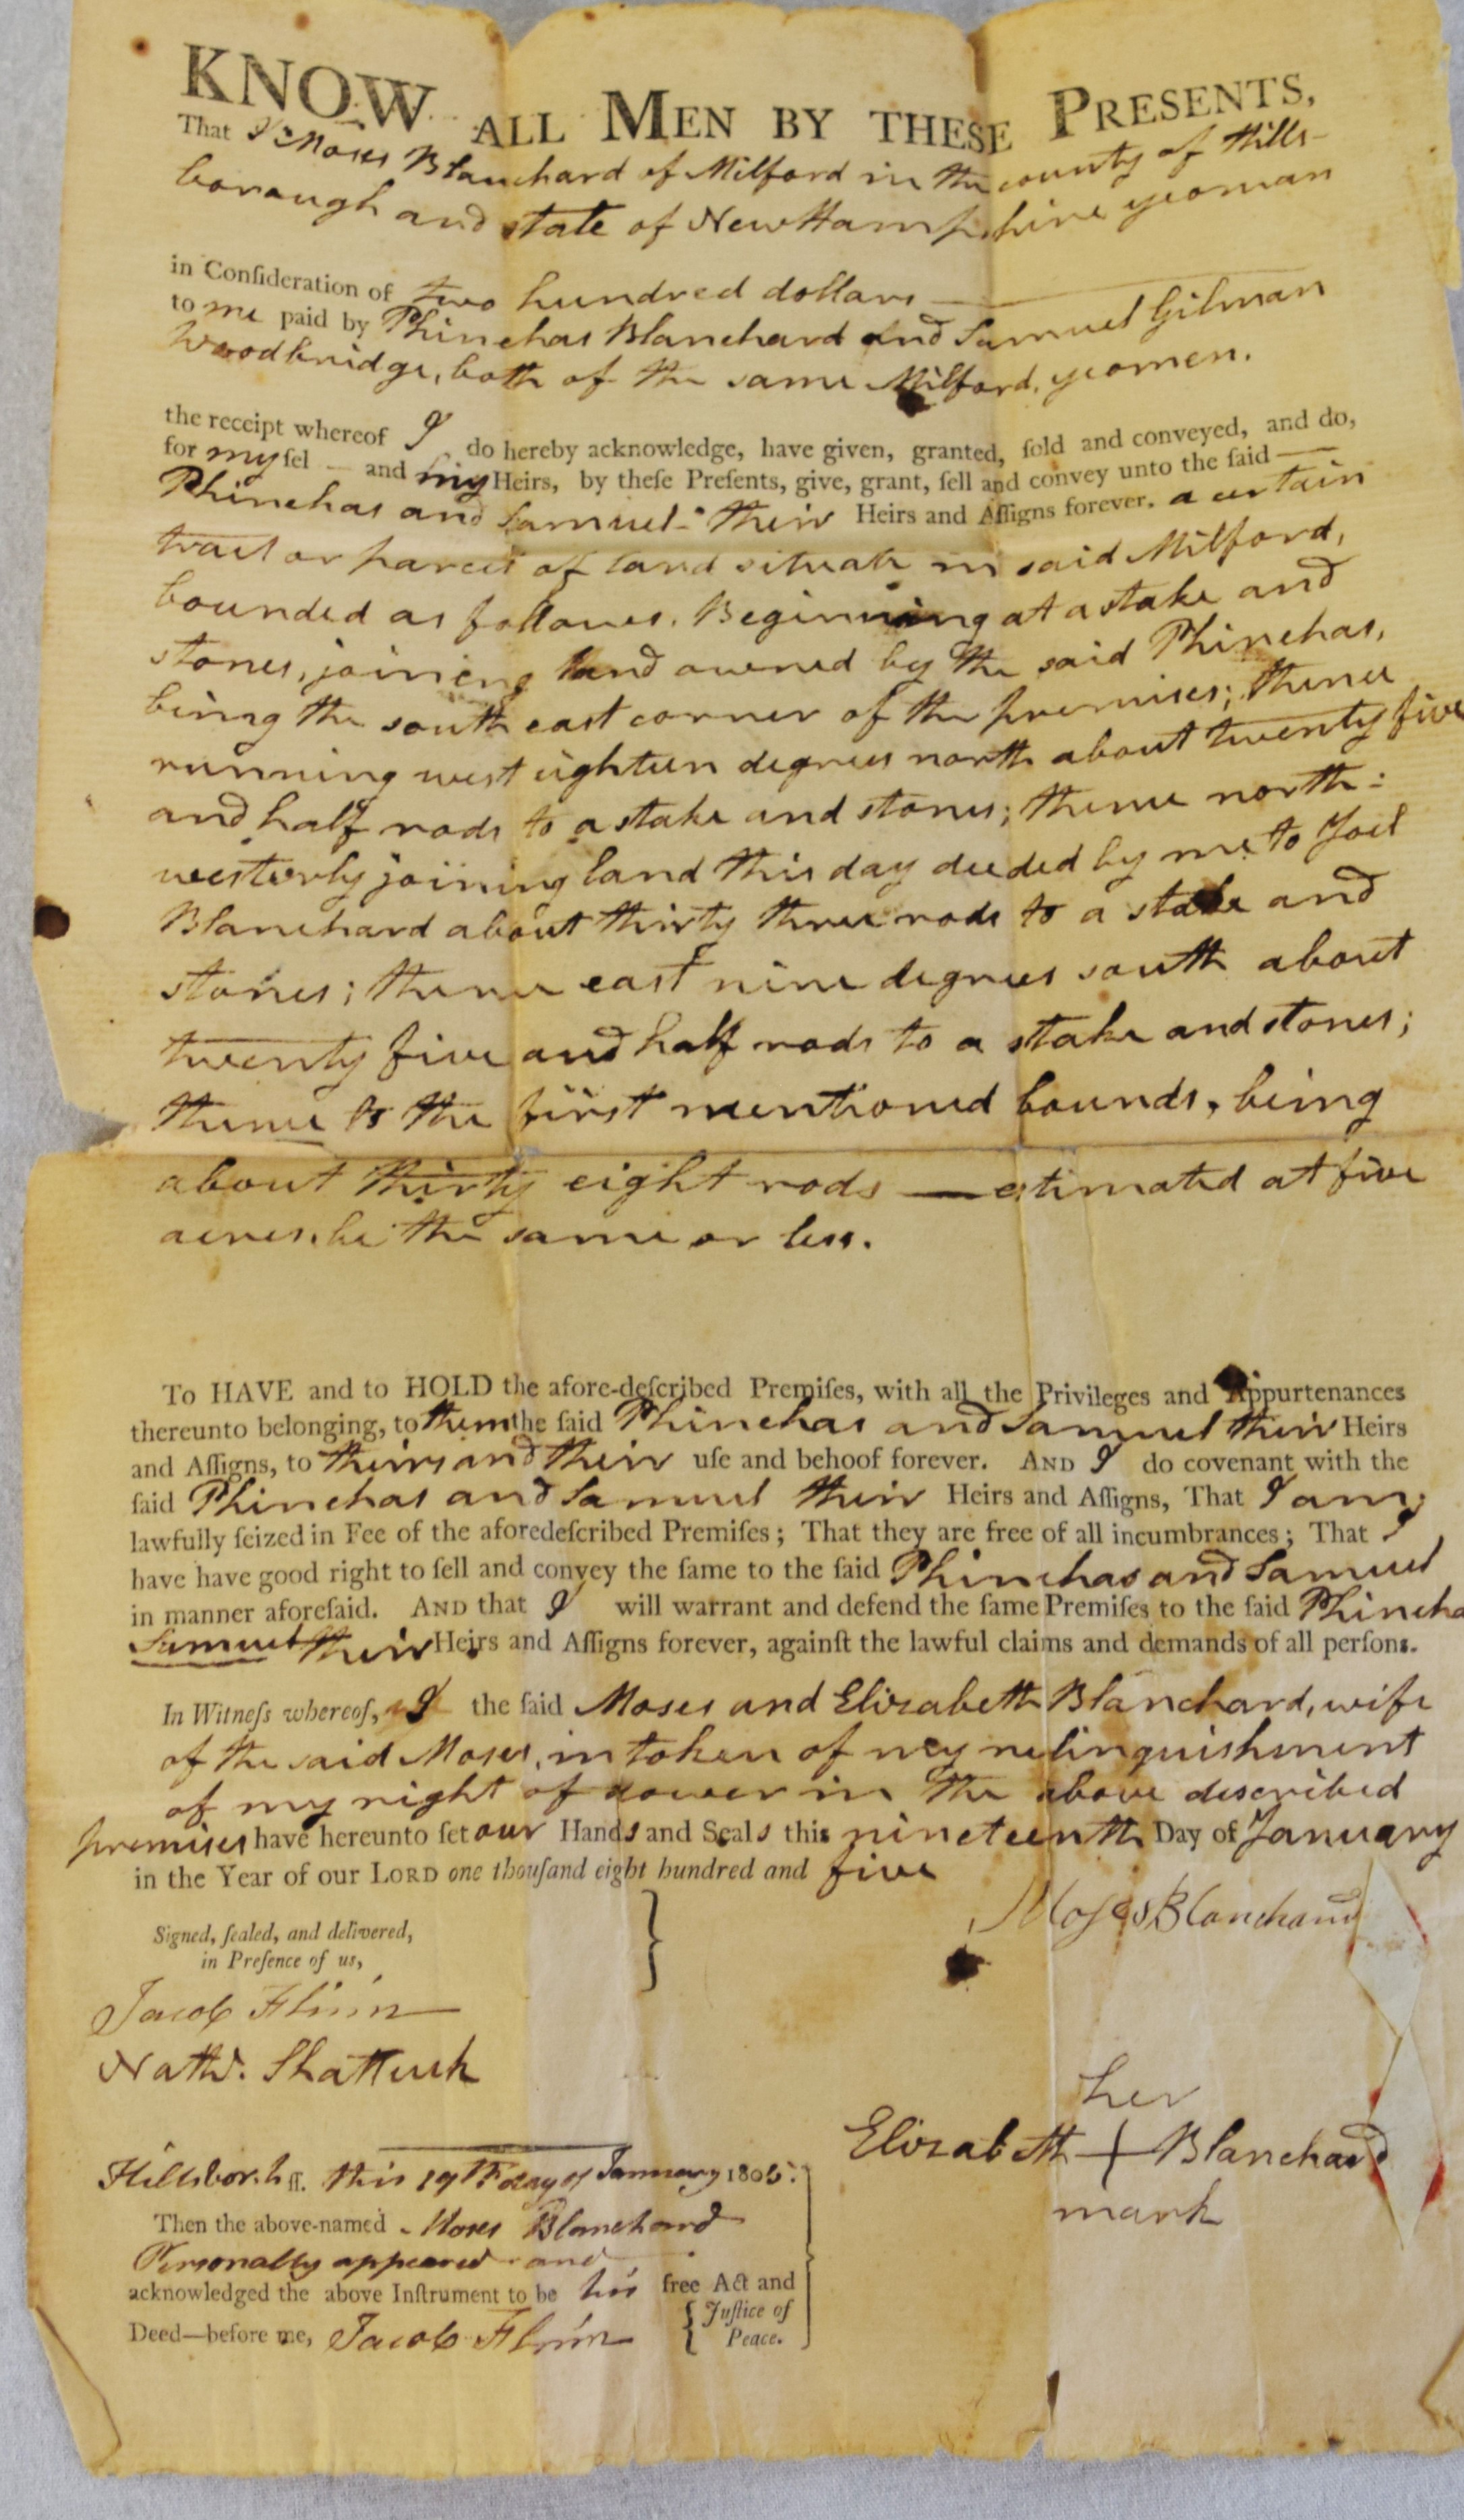 KNOW ALL MEN BY THESE PRESENTS,
That I Moses Blanchard of Milford in the county of Hills-
borough and state of New Hampshire yeoman
in Conſideration of two hundred dollars —
to me paid by Phinehas Blanchard and Samuel Gilman
Woodbridge, both of the same Milford, yeomen.
the receipt whereof I do hereby acknowledge, have given, granted, ſold and conveyed, and do,
for my ſel — and my Heirs, by theſe Preſents, give, grant, ſell and convey unto the ſaid —
Phinehas and Samuel - their Heirs and Aſſigns forever. a certain
tract or parcel of land situate in said Milford,
bounded as follows. Beginning at a stake and
stones, joining land owned by the said Phinehas,
being the south east corner of the premises; thence
running west eighteen degrees north about twenty five
and half rods to a stake and stones; thence north-
westerly joining land this day deeded by me to Joel
Blanchard about thirty three rods to a stake and
stones; thence east nine degrees south about
twenty five and half rods to a stake and stones;
thence to the first mentioned bounds, being
about thirty eight rods — estimated at five
acres, be the same or less.
To HAVE and to HOLD the afore-deſcribed Premiſes, with all the Privileges and Appurtenances
thereunto belonging, to them the ſaid Phinehas and Samuel their Heirs
and Aſſigns, to theirs and their uſe and behoof forever. AND I do covenant with the
ſaid Phinehas and Samuel their Heirs and Aſſigns, That I am
lawfully ſeized in Fee of the aforedeſcribed Premiſes; That they are free of all incumbrances; That I
have have good right to ſell and convey the ſame to the ſaid Phinehas and Samuel
in manner aforeſaid. AND that I will warrant and defend the ſame Premiſes to the ſaid Phineha
Samuel their Heirs and Aſſigns forever, againſt the lawful claims and demands of all perſons.
In Witneſs whereof, I the ſaid Moses and Elizabeth Blanchard, wife
of the said Moses, in token of my relinquishment
of my right of dower in the above described
premises have hereunto ſet our Hands and Seals this nineteenth Day of January
in the Year of our LORD one thouſand eight hundred and five
Moses Blanchard
Signed, ſealed, and delivered,
in Preſence of us,
Jacob Flinn
Nathl. Shattuck
her
Elizabeth + Blanchard
mark
Hillsbor.h ſſ. this 19th day of January 1805.
Then the above-named Moses Blanchard
Personally appeared and
acknowledged the above Inſtrument to be his free Act and
Deed—before me, Jacob Flinn { Juſtice of
Peace.